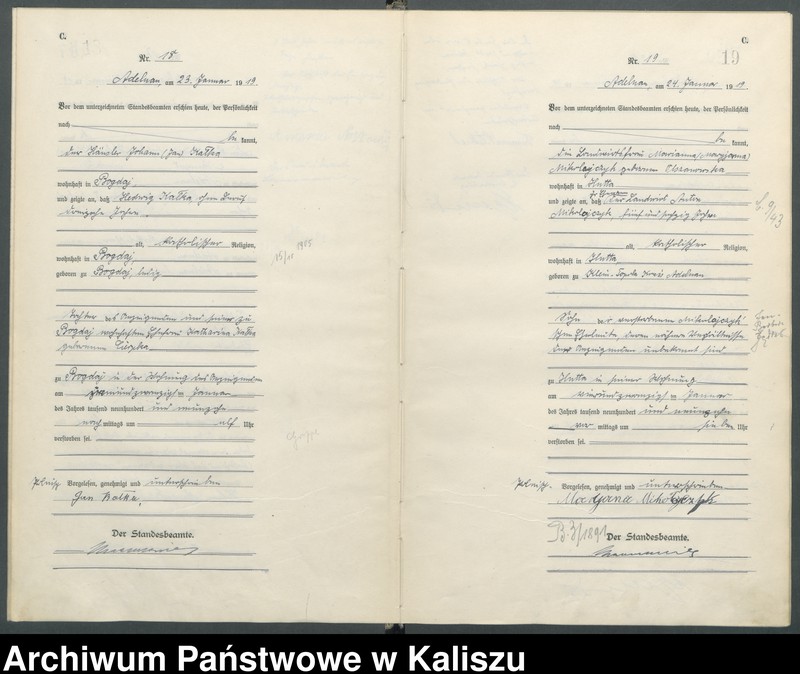 C.
Nr. 18
Adelnau, am 23. Januar 1919.
Vor dem unterzeichneten Standesbeamten erschien heute, der Persönlichkeit
nach
be kannt,
der Häusler Johann (Jan) Kałka
wohnhaft in Bogdaj,
und zeigte an, daß Hedwig Kałka, ohne Beruf
Jahre,
alt, katholischer Religion,
wohnhaft in Bogdaj
geboren zu Bogdaj, ledig
15/11 1905
Tochter des Anzeigenden und seiner zu
Bogdaj wohnhaften Ehefrau Katharina Kałka
geborenen
zu Bogdaj in der Wohnung des Anzeigenden
am Januar
des Jahres tausend neunhundert und neunzehn
nach mittags um elf Uhr
verstorben sei.
Grippe
Vorgelesen, genehmigt und unterschrieben
Jan Kałka.
Der Standesbeamte.
C.
19
Nr. 19
Adelnau, am 24. Januar 1919.
Vor dem unterzeichneten Standesbeamten erschien heute, der Persönlichkeit
nach
be kannt,
die Landwirtsfrau Marianna (Maryjanna)
Mikołajczyk geborenen
wohnhaft in Hutta
und zeigte an, daß der Landwirt Anton
Mikołajczyk, fünfundsechzig Jahre
alt, katholischer Religion,
wohnhaft in Hutta
geboren zu Klein-Topola Kreis Adelnau
Sohn der verstorbenen Mikołajczyk'
schen Eheleute, deren nähere Verhältnisse
der Anzeigenden unbekannt sind
zu Hutta in seiner Wohnung
am vierundzwanzigsten Januar
des Jahres tausend neunhundert und neunzehn
vor mittags um sieben Uhr
verstorben sei.
Vorgelesen, genehmigt und unterschrieben
Maryjana Mikołajczyk
B. 3/1891
Der Standesbeamte.
Archiwum Państwowe w Kaliszu